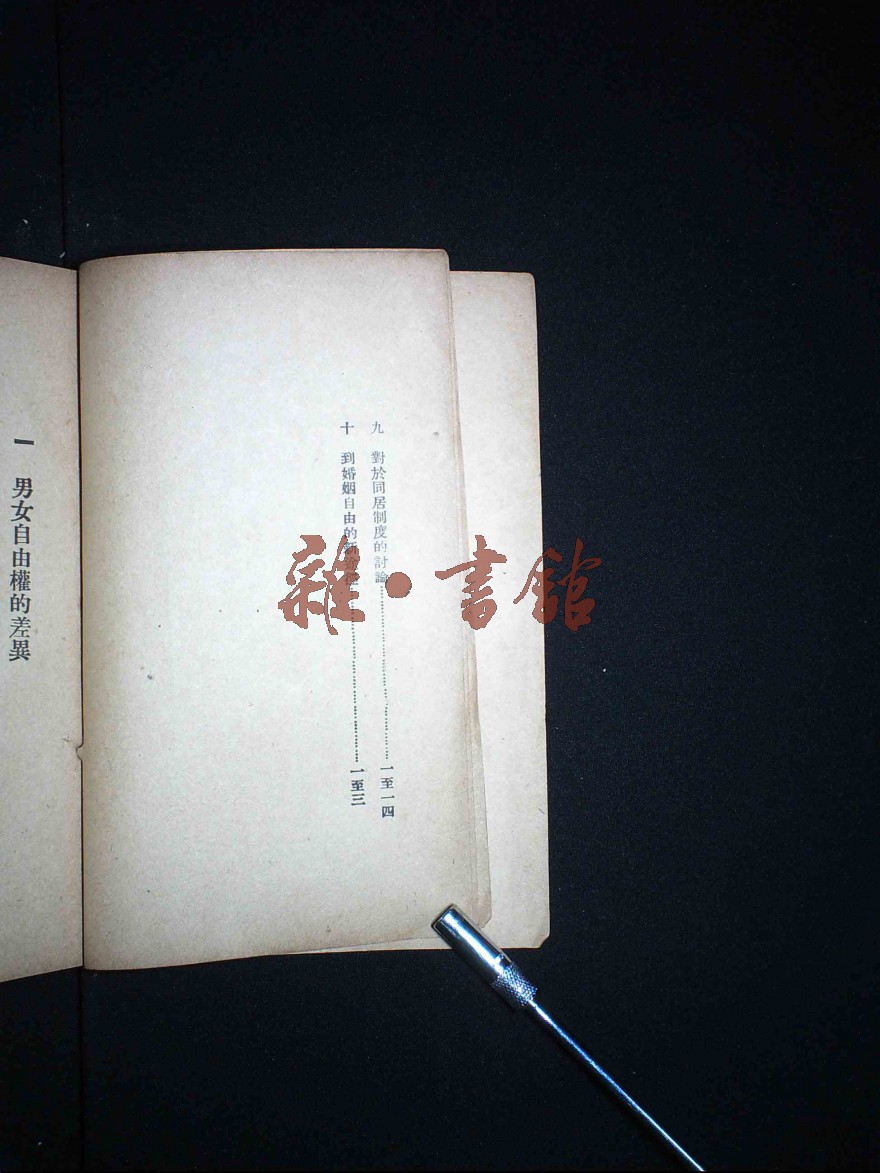 九　對於同居制度的討論……………………一至一四
十　到婚姻自由的新途徑……………………一至三
一　男女自由權的差異
雜·書館